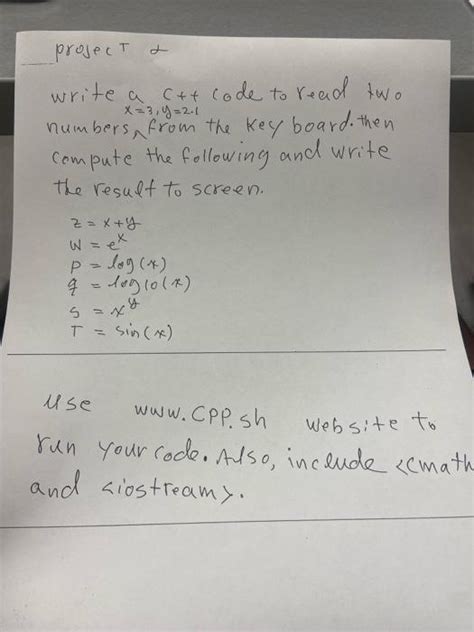 project 2
write a C++ code to read two
x=3, y=2.1
numbers, from the key board. then
compute the following and write
the result to screen.
z = x+y
w = e^x
p = log(x)
q = log10(x)
s = x^y
T = sin(x)
use www.cpp.sh website to
run your code. Also, include <cmath
and <iostream>.